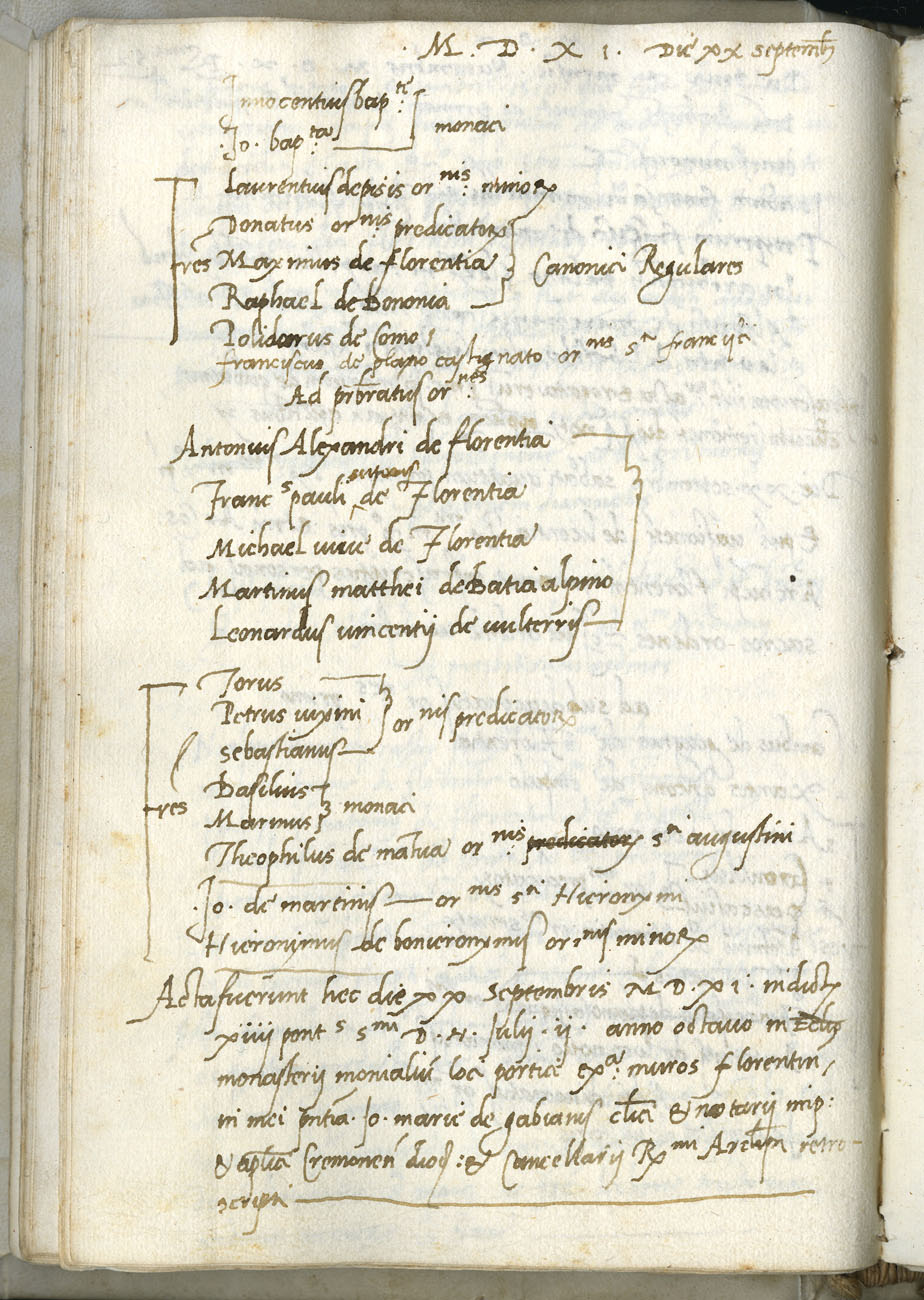 · M · D · X I · Die xx septemb
Innocentius bap te
· Jo · bap ta monaci
Laurentius de pisis or nis minorꝝ
Donatus or nis predicatorꝝ
res Maximus de florentia Canonici Regulares
Raphael de Bononia
Polidorus de Como
franciscus de plano castignato or nis s ti
Ad prbratus or nes
Antonius Alexandri de florentia
Franc s pauli sutoris de Florentia
Michael de Florentia
Martinus matthei de alpino
Leonardus vincentij de vulterris
Torus
Petrus or nis predicatorꝝ
Sebastianus
Basilius
res Marinus monaci
Theophilus de matua or nis predicatorꝝ s ti augustini
· Jo · de martinis or nis s ti Hieronymi
Hieronimus de bonieronymis or nis minorꝝ
Acta fuerunt hec die xx Septembris M D · XI · indict
xiiii pont s s mi D · N · Julii · ii · anno octavo in
monasterij monialiū loci portice ex a muros florentin
in mei pntia · Jo · marie de gabianis clici & notarij imp:
& aplica Cremonen dioc : & Cancellarij R mi retro
scripti